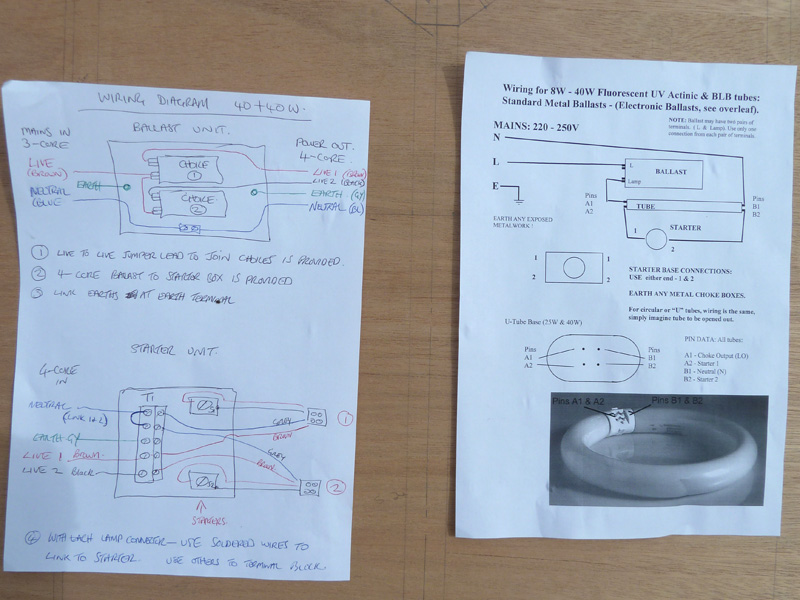 WIRING DIAGRAM 40+40W.
BALLAST UNIT.
MAINS IN
3-CORE
POWER OUT.
4-CORE
LIVE
(BROWN)
EARTH
NEUTRAL
(BLUE
CHOKE
1
CHOKE
2
LIVE 1 (BRWN)
LIVE 2 (BLACK)
EARTH (GY
NEUTRAL (BL)
1 LIVE TO LIVE JUMPER LEAD TO JOIN CHOKES IS PROVIDED.
2 4-CORE BALLAST TO STARTER BOX IS PROVIDED
3 LINK EARTHS AT EARTH TERMINAL
STARTER UNIT.
4-CORE
IN
T1
NEUTRAL
(LINK 1&2)
EARTH GY
LIVE 1 BROWN.
LIVE 2 BLACK
GREY
BROWN
1
GREY
BROWN.
2
STARTERS.
4 WITH EACH LAMP CONNECTOR - USE SOLDERED WIRES TO
LINK TO STARTER. USE OTHERS TO TERMINAL BLOCK.
Wiring for 8W - 40W Fluorescent UV Actinic & BLB tubes:
Standard Metal Ballasts - (Electronic Ballasts, see overleaf).
NOTE: Ballast may have two pairs of
terminals. ( L & Lamp). Use only one
connection from each pair of terminals.
MAINS: 220 - 250V
N
L
E
L
BALLAST
Lamp
Pins
A1
A2
TUBE
Pins
B1
B2
STARTER
1
2
EARTH ANY EXPOSED
METALWORK !
1
2
1
2
STARTER BASE CONNECTIONS:
USE either end - 1 & 2
EARTH ANY METAL CHOKE BOXES.
For circular or "U" tubes, wiring is the same,
simply imagine tube to be opened out.
U-Tube Base (25W & 40W)
Pins
A1
A2
Pins
B1
B2
PIN DATA: All tubes:
A1 - Choke Output (LO)
A2 - Starter 1
B1 - Neutral (N)
B2 - Starter 2
Pins A1 & A2
Pins B1 & B2